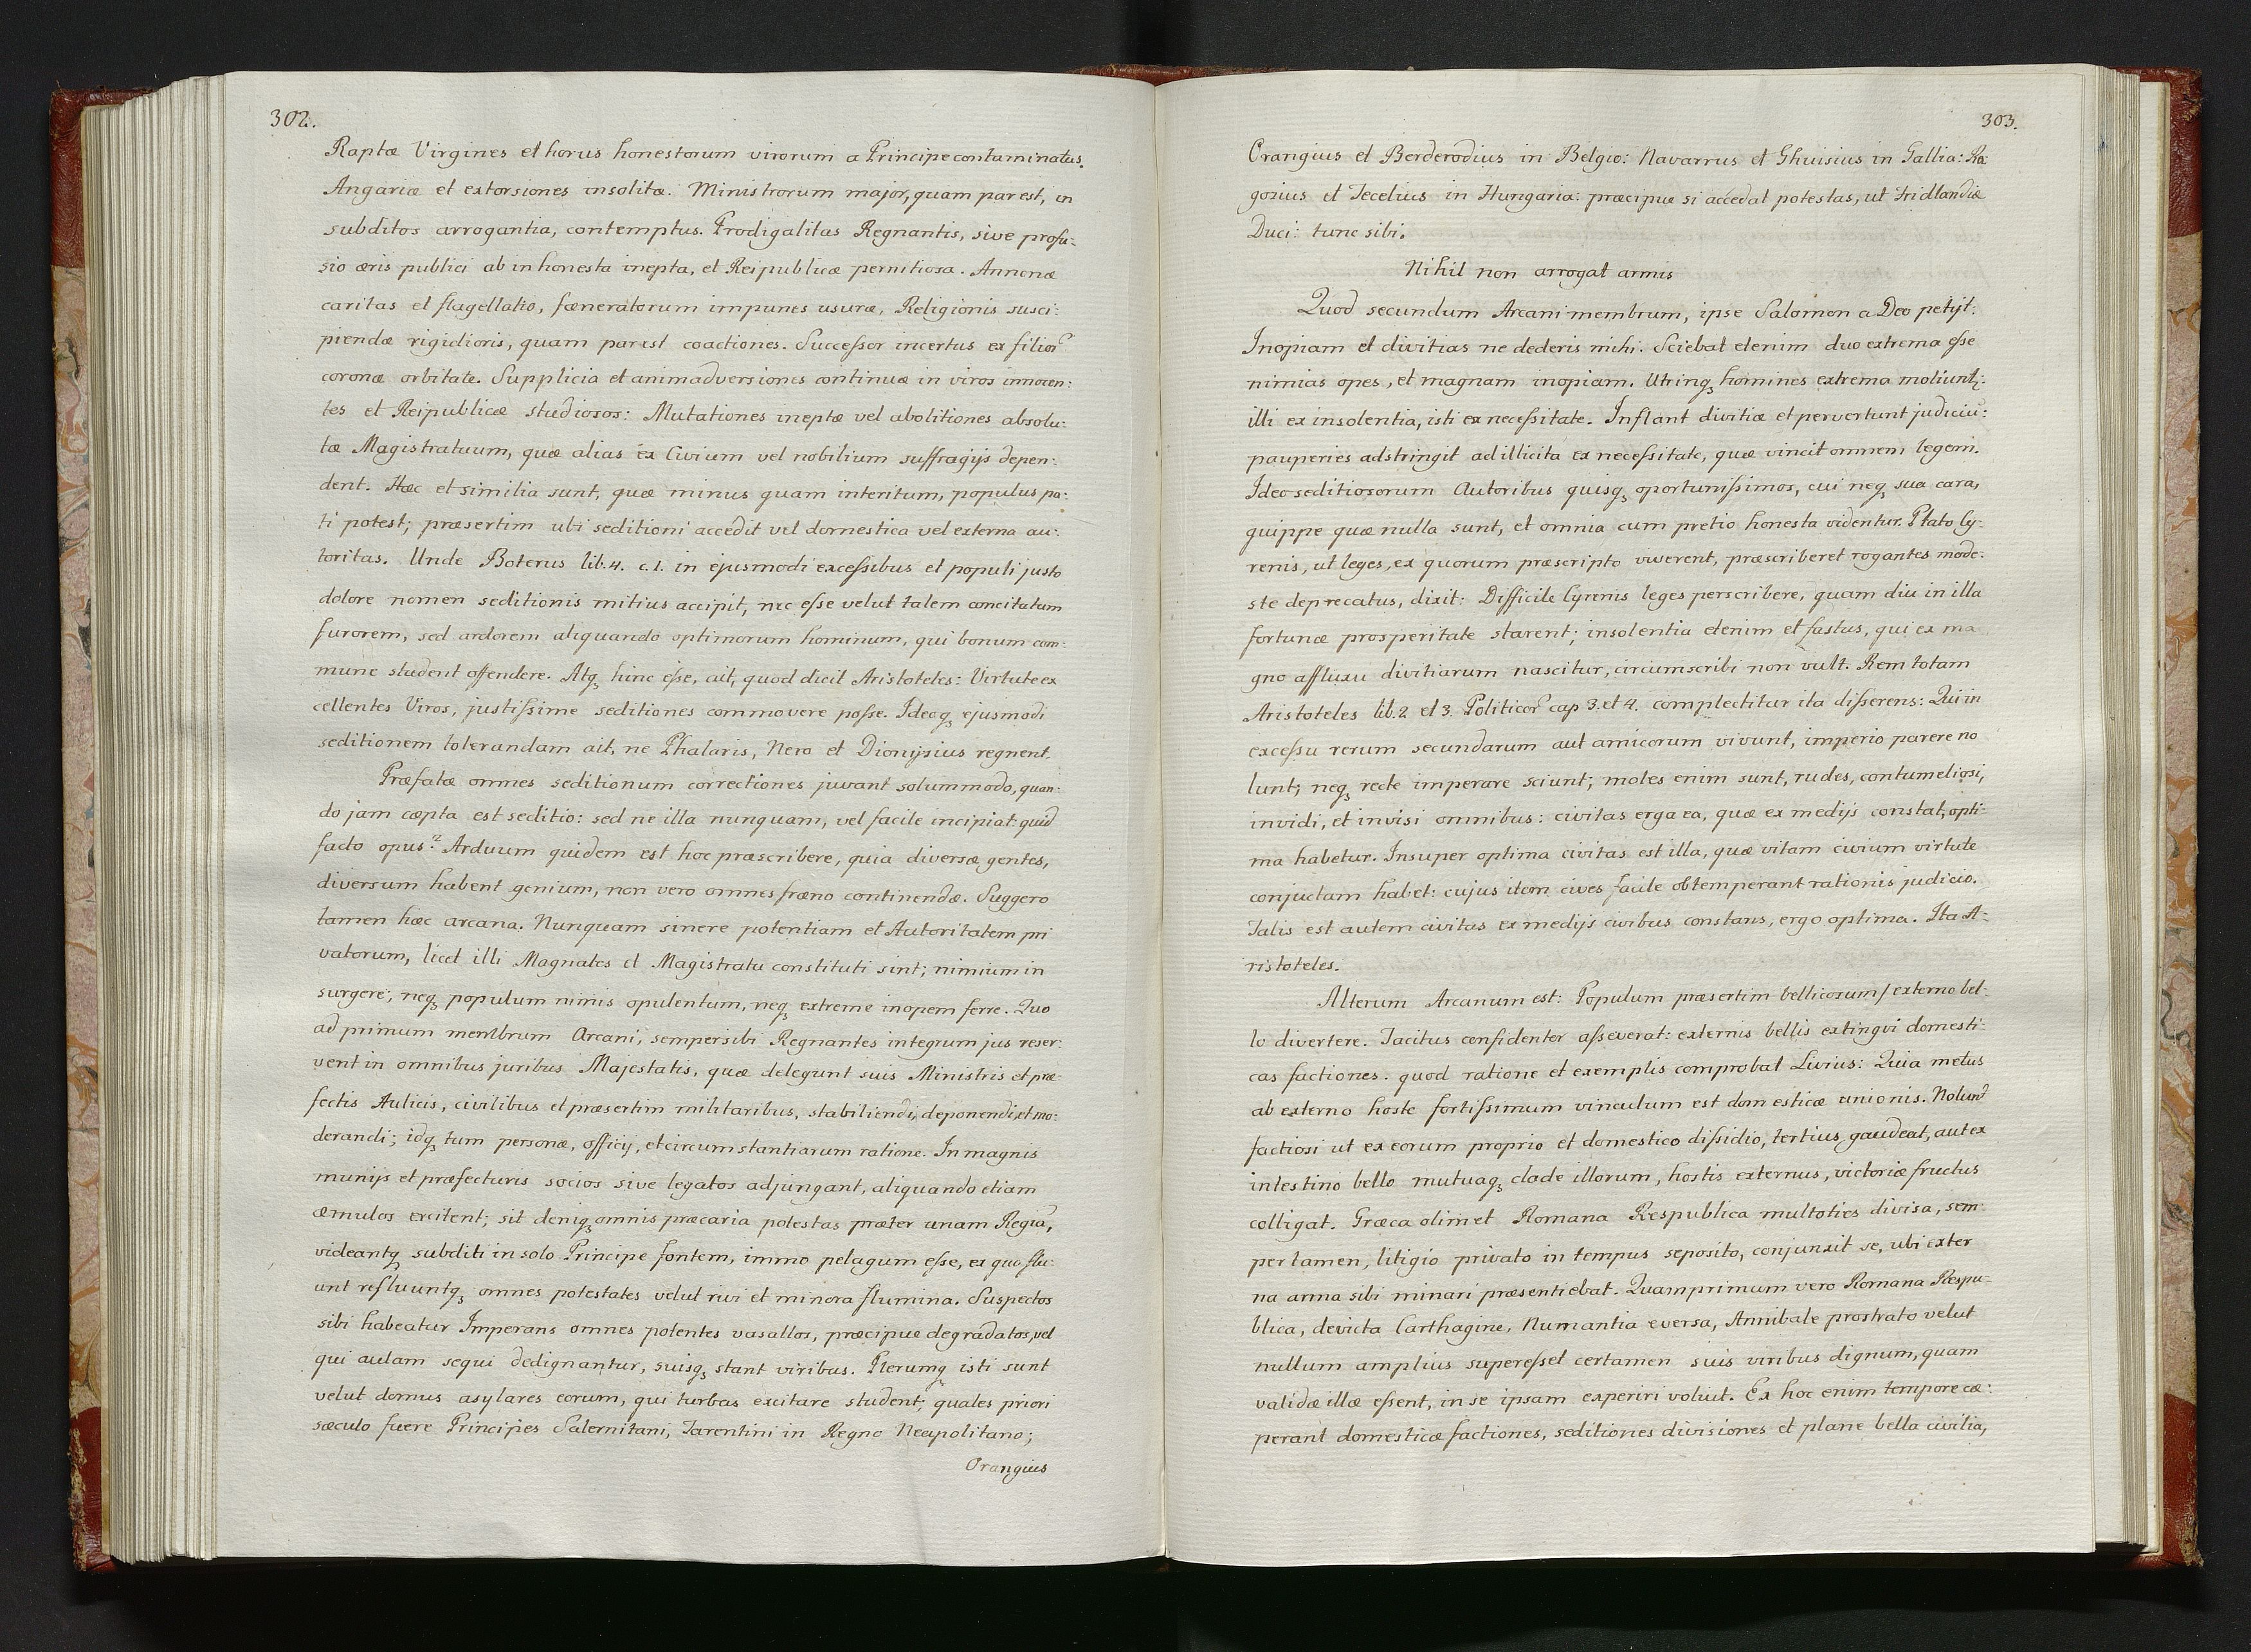 302.
Raptæ Virgines et horus honestorum virorum a Principe contaminatus.
Angariæ et extorsiones insolitæ. Ministrorum major, quam par est, in
subditos arrogantia, contemptus. Prodigalitas Regnantis, sive profu-
sio æris publici ab inhonesta inepta, et Reipublicæ pernitiosa. Annonæ
caritas et flagellatio, fæneratorum impunes usuræ, Religionis susci:
piendæ rigidioris, quam par est coactiones. Successor incertus ex filior
coronæ orbitate. Supplicia et animadversiones continuæ in viros innocen:
tes et Reipublicæ studiosos: Mutationes ineptæ vel abolitiones absolu:
tæ Magistratuum, quæ alias ex Civium vel nobilium suffragijs depen:
dent. Hæc et similia sunt, quæ minus quam interitum, populus pa:
ti potest; præsertim ubi seditioni accedit vel domestica vel externa au:
toritas. Unde Boterus lib. 4. c. 1. in ejusmodi excessibus et populi justo
dolore nomen seditionis mitius accipit, nec esse velut talem concitatum
furorem, sed ardorem aliquando optimorum hominum, qui bonum com:
mune student offendere. Atq₃ hinc esse, ait, quod dicit Aristoteles: Virtute ex
cellentes Viros, justissime seditiones commovere posse. Ideoq₃ ejusmodi
seditionem tolerandam ait, ne Phalaris, Nero et Dionysius regnent.
Præfatæ omnes seditionum correctiones juvant solummodo, quan:
do jam cæpta est seditio: sed ne illa nunquam, vel facile incipiat: quid
facto opus? Arduum quidem est hoc præscribere, quia diversæ gentes,
diversum habent genium, non vero omnes fræno continendæ. Suggero
tamen hæc arcana. Nunquam sinere potentiam et Autoritatem pri
vatorum, licet illi Magnates et Magistratu constituti sint; nimium in
surgere; neq₃ populum nimis opulentum, neq₃ extreme inopem ferre. Quo
ad primum membrum Arcani, semper sibi Regnantes integrum jus reser:
vent in omnibus juribus Majestatis, quæ delegunt suis Ministris et præ:
fectis Aulicis, civilibus et præsertim militaribus, stabiliendi, deponendi, et mo:
derandi; idq₃ tum personæ, officij, et circumstantiarum ratione. In magnis
munijs et præfecturis socios sive legatos adjungant, aliquando etiam
æmulos excitent; sit deniq₃ omnis præcaria potestas præter unam Regiã,
videantq₃ subditi in solo Principe fontem, immo pelagum esse, ex quo flu:
unt refluuntq₃ omnes potestates velut rivi et minora flumina. Suspectos
sibi habeatur Imperans omnes potentes vasallos, præcipue degradatos, vel
qui aulam sequi dedignantur, suisq₃ stant viribus. Plerumq₃ isti sunt
velut domus asylares eorum, qui turbas excitare student; quales priori
sæculo fuere Principes Salernitani, Tarentini in Regno Neapolitano;
Orangius
303.
Orangius et Berderodius in Belgio: Navarrus et Ghuisius in Gallia: Ra:
gozius et Tecelius in Hungaria: præcipue si accedat potestas, ut Fridlandiæ
Duci: tunc sibi.
Nihil non arrogat armis
Quod secundum Arcani membrum, ipse Salomon a Deo petijt:
Inopiam et divitias ne dederis mihi. Sciebat etenim duo extrema esse
nimias opes, et magnam inopiam. Utrinq₃ homines extrema moliunt:
illi ex insolentia, isti ex necessitate. Inflant divitiæ et pervertunt judiciũ:
pauperies adstringit ad illicita ex necessitate, quæ vincit omnem legem.
Ideo seditiosorum Autoribus quisq₃ oportunissimos, cui neq₃ sua cara,
quippe quæ nulla sunt, et omnia cum pretio honesta videntur. Plato Cy:
renis, ut leges, ex quorum præscripto viverent, præscriberet rogantes mode:
ste deprecatus, dixit: Difficile Cyrenis leges perscribere, quam diu in illa
fortunæ prosperitate starent; insolentia etenim et fastus, qui ex ma
gno affluxu divitiarum nascitur, circumscribi non vult. Rem totam
Aristoteles lib. 2. et 3. Politicor cap 3. et 4. complectitur ita disserens: Qui in
excessu rerum secundarum aut amicorum vivunt, imperio parere no
lunt; neq₃ recte imperare sciunt; moles enim sunt, rudes, contumeliosi,
invidi, et invisi omnibus: civitas erga ea, quæ ex medijs constat, opti:
ma habetur. Insuper optima civitas est illa, quæ vitam civium virtute
conjuctam habet: cujus item cives facile obtemperant rationis judicio.
Talis est autem civitas ex medijs civibus constans, ergo optima. Ita A:
ristoteles.
Alterum Arcanum est: Populum præsertim bellicosum / externo bel:
lo divertere. Tacitus confidenter asseverat: externis bellis extingvi domesti:
cas factiones. quod ratione et exemplis comprobat Livius: Quia metus
ab externo hoste fortissimum vinculum est domesticæ unionis. Nolunt
factiosi ut ex eorum proprio et domestico dissidio, tertius gaudeat, aut ex
intestino bello mutuaq₃ clade illorum, hostis externus, victoriæ fructus
colligat. Græca olim et Romana Respublica multoties divisa, sem:
per tamen, litigio privato in tempus seposito, conjunxit se, ubi exter
na arma sibi minari præsentiebat. Quamprimum vero Romana Respu:
blica, devicta Carthagine, Numantia eversa, Annibale prostrato velut
nullum amplius superesset certamen suis viribus dignum, quam
validæ illæ essent, in se ipsam experiri voluit. Ex hoc enim tempore cæ:
perant domesticæ factiones, seditiones divisiones et plane bella civilia,